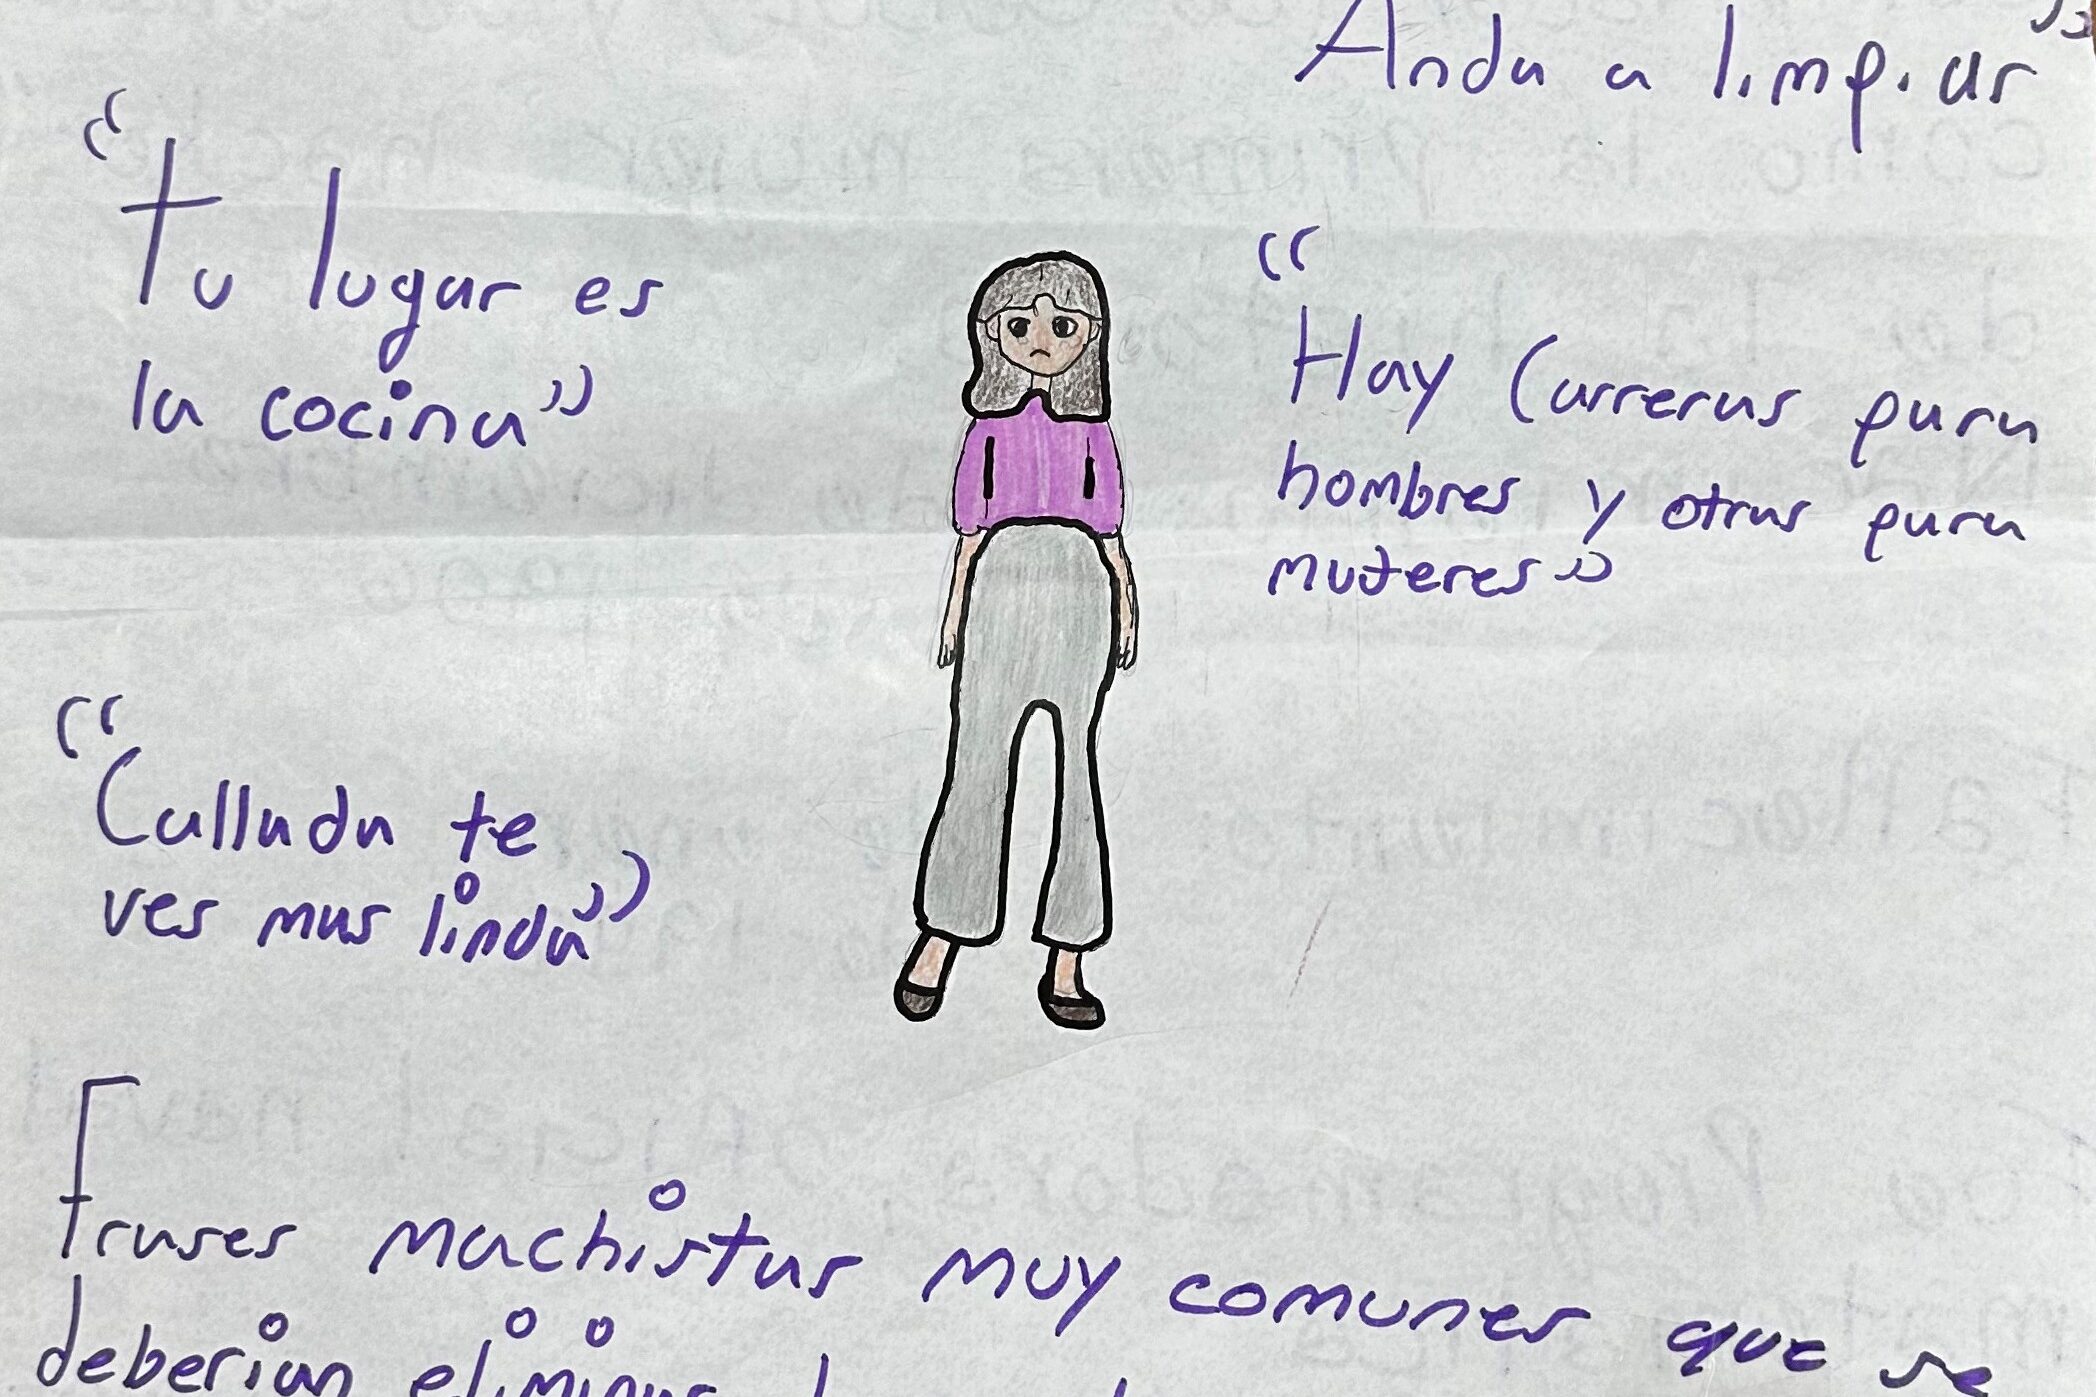 Anda a limpiar"
"Tu lugar es
la cocina"
"Hay Carreras para
hombres y otras para
mujeres"
"Callada te
ves mas linda"
Frases machistas muy comunes que se
deberian eliminar